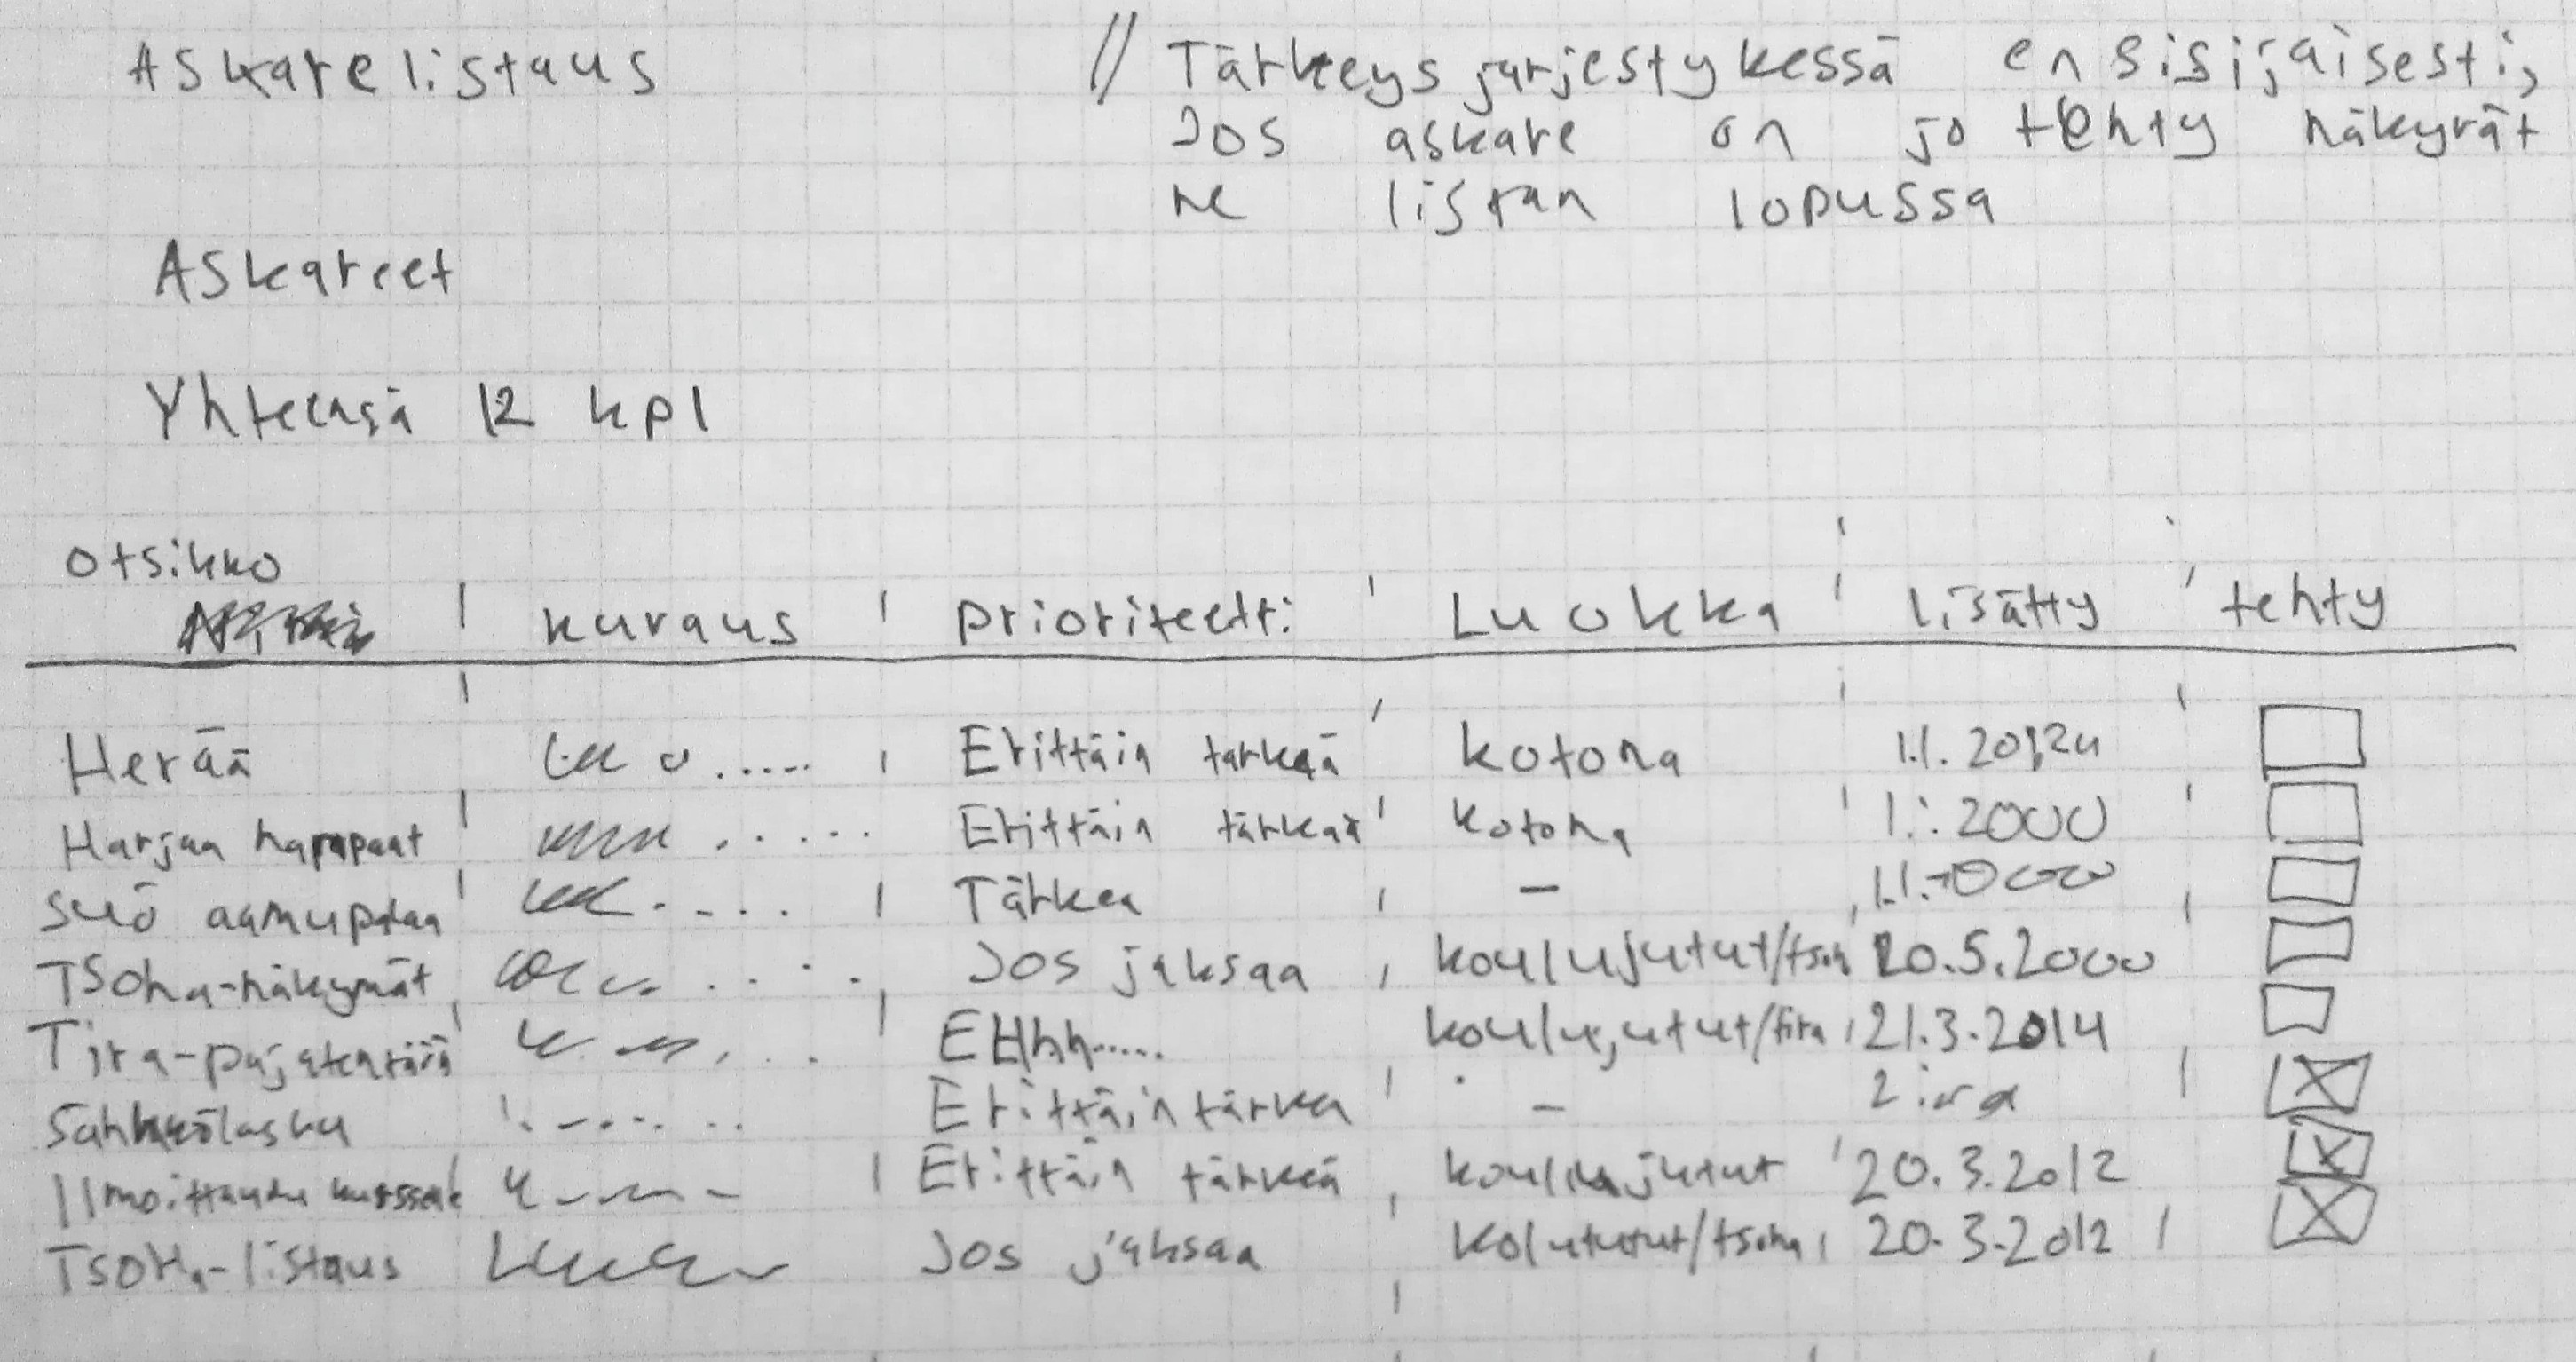 Askarelistaus
// Tärkeysjärjestykessä ensisijaisesti,
Jos askare on jo tehty näkyvät
ne listan lopussa
Askareet
Yhteensä 12 kpl
otsikko
kuvaus prioriteetti Luokka lisätty tehty
Herää Erittäin tärkeä kotona
Harjaa hampaat Erittäin tärkeä kotona 2000
Syö aamupalaa Tärkeä -
Tsoha-näkymät Jos jaksaa koulujutut/tsoha 20.5.2000
Tira- EHhh..... koulujutut/tira 21.3.2014
Sähkölasku Erittäin tärkeä -
Ilmoittaudu Erittäin tärkeä koulujutut 20.3.2012
TsoHa-listaus Jos jaksaa 20.3.2012